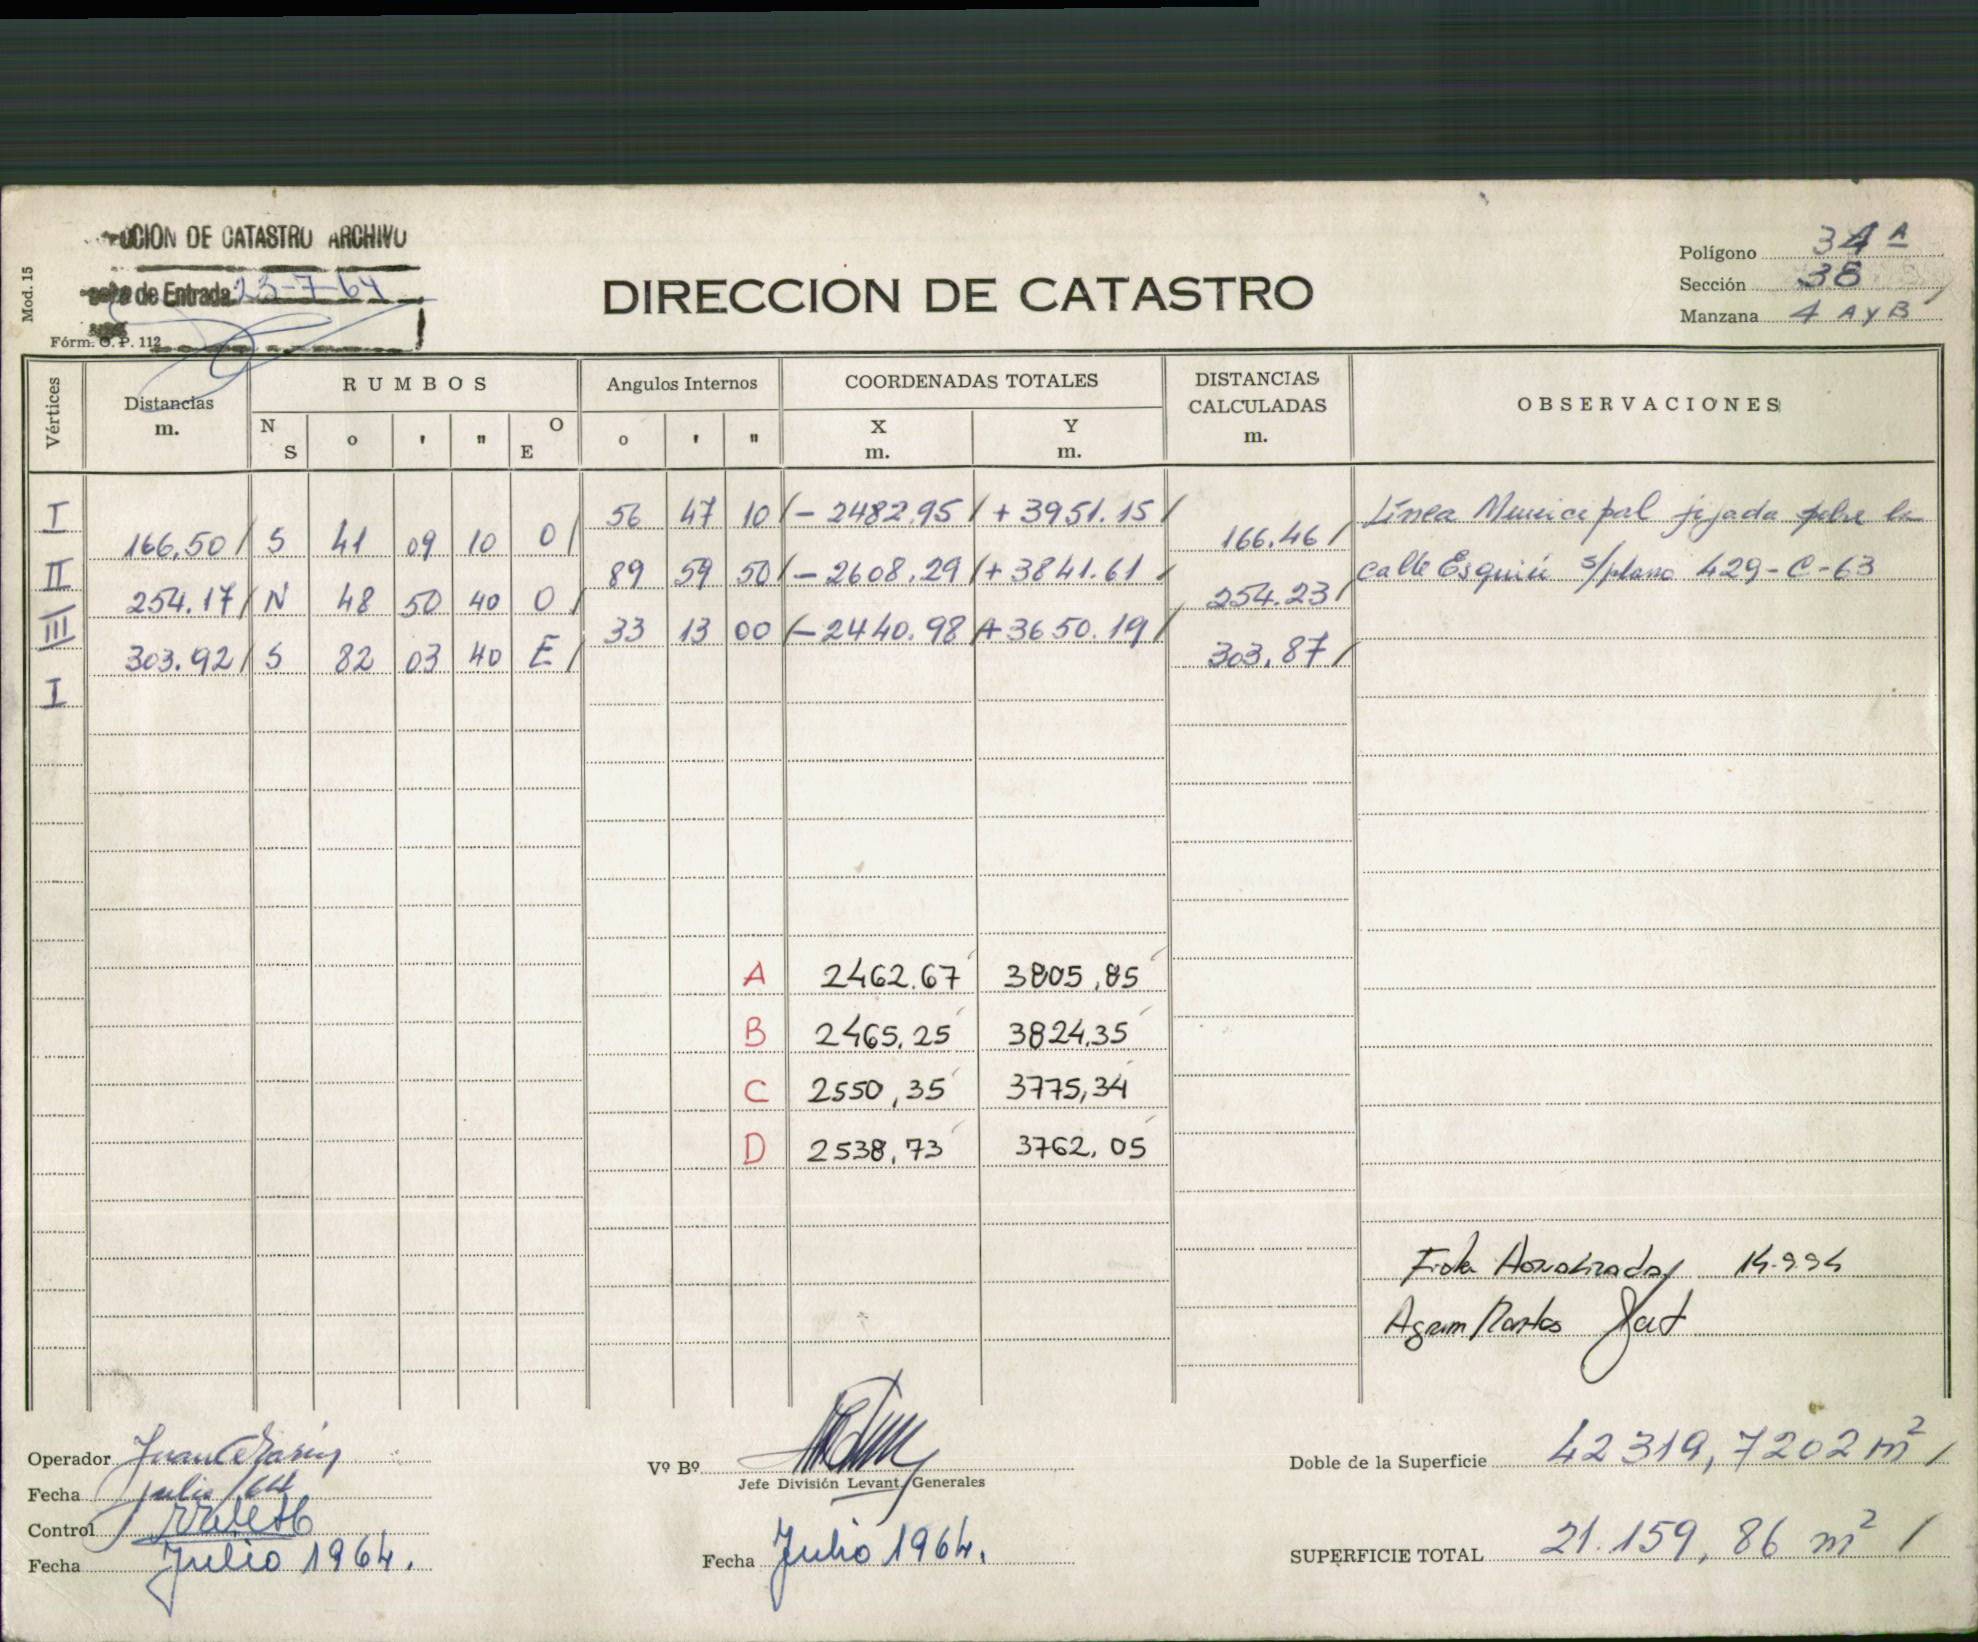 CCION DE CATASTRO ARCHIVO
de Entrada 23-7-64
Mod. 15
Fórm. O. P. 112
DIRECCION DE CATASTRO
Polígono 34 A
Sección 38
Manzana 4 A y B
Vértices Distancias m. RUMBOS Angulos Internos COORDENADAS TOTALES DISTANCIAS CALCULADAS m. OBSERVACIONES
N S o ' " O E o ' " X m. Y m.
I 56 47 10 - 2482.95 + 3951.15 Línea Municipal fijada sobre la
166,50 S 41 09 10 O 166.46
II 89 59 50 - 2608.29 + 3841.61 calle Esquiú s/plano 429-C-63
254.17 N 48 50 40 O 254.23
III 33 13 00 - 2440.98 + 3650.19
303.92 S 82 03 40 E 303,87
I
A 2462.67 3805,85
B 2465,25 3824,35
C 2550,35 3775,34
D 2538,73 3762,05
14.9.94
Agrim
Operador Juan
Fecha Julio/64
Control
Fecha Julio 1964.
Vº Bº
Jefe División Levant. Generales
Fecha Julio 1964.
Doble de la Superficie 42319,7202 m²
SUPERFICIE TOTAL 21.159,86 m²